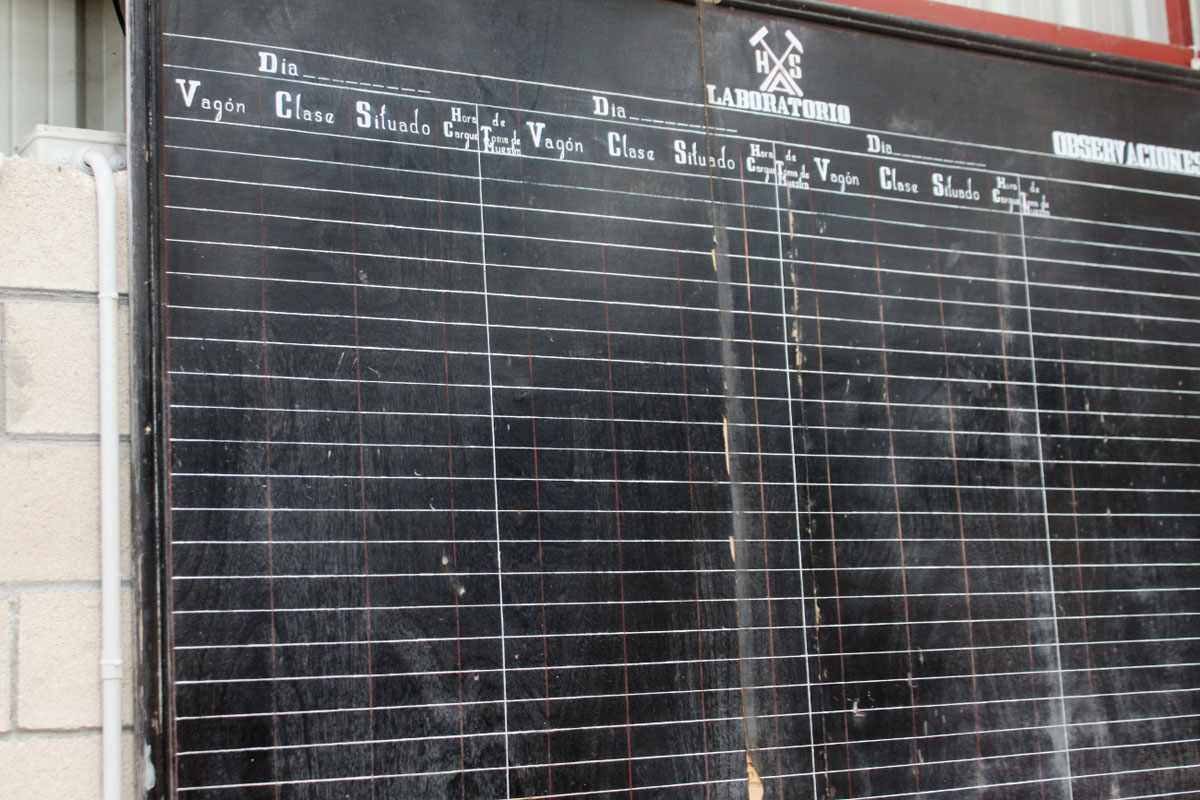 H S
LABORATORIO
Dia
Dia
Dia
OBSERVACIONES
Vagón Clase Situado Hora de Cargue Toma de Muestra
Vagón Clase Situado Hora de Cargue Toma de Muestra
Vagón Clase Situado Hora de Cargue Toma de Muestra